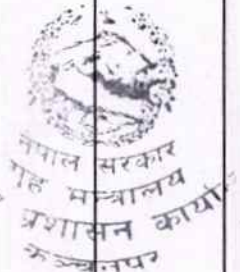 नेपाल सरकार
गृह मन्त्रालय
प्रशासन कार्या
कञ्चनपुर